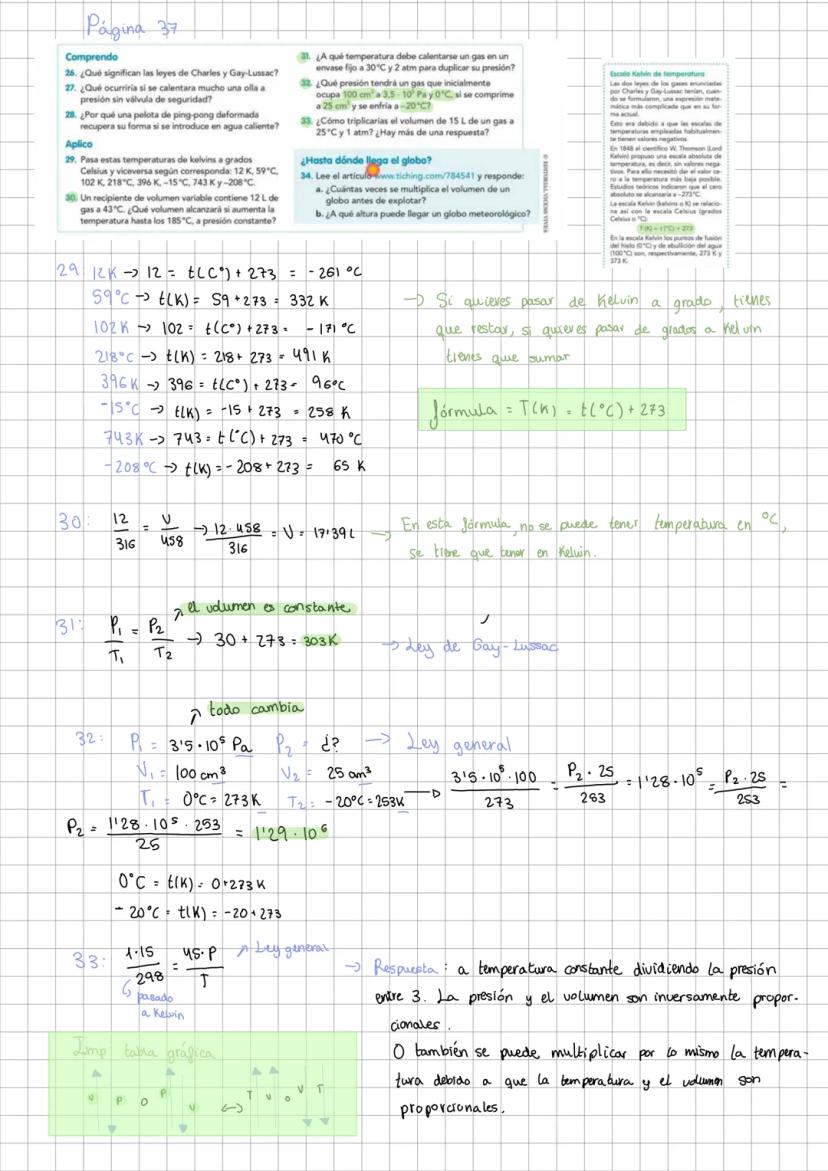 Página 37
Comprendo
26. ¿Qué significan las leyes de Charles y Gay-Lussac?
27. ¿Qué ocurriría si se calentara mucho una olla a
presión sin válvula de seguridad?
28. ¿Por qué una pelota de ping-pong deformada
recupera su forma si se introduce en agua caliente?
Aplico
29. Pasa estas temperaturas de kelvins a grados
Celsius y viceversa según corresponda: 12 K, 59°C,
102 K, 218°C, 396 K, –15°C, 743 K y –208°C.
30. Un recipiente de volumen variable contiene 12 L de
gas a 43°C. ¿Qué volumen alcanzará si aumenta la
temperatura hasta los 185°C, a presión constante?
31. ¿A qué temperatura debe calentarse un gas en un
envase fijo a 30°C y 2 atm para duplicar su presión?
32. ¿Qué presión tendrá un gas que inicialmente
ocupa 100 cm³ a 3,5 · 10⁵ Pa y 0°C, si se comprime
a 25 cm³ y se enfría a –20°C?
33. ¿Cómo triplicarías el volumen de 15 L de un gas a
25°C y 1 atm? ¿Hay más de una respuesta?
¿Hasta dónde llega el globo?
34. Lee el artículo www.tiching.com/784541 y responde:
a. ¿Cuántas veces se multiplica el volumen de un
globo antes de explotar?
b. ¿A qué altura puede llegar un globo meteorológico?
© EDITORIAL VICENS VIVES
Escala Kelvin de temperatura
Las dos leyes de los gases enunciadas
por Charles y Gay-Lussac tenían, cuan-
do se formularon, una expresión mate-
mática más complicada que en su for-
ma actual.
Esto era debido a que las escalas de
temperaturas empleadas habitualmen-
te tienen valores negativos.
En 1848 el científico W. Thomson (Lord
Kelvin) propuso una escala absoluta de
temperatura, es decir, sin valores nega-
tivos. Para ello necesitó dar el valor ce-
ro a la temperatura más baja posible.
Estudios teóricos indicaron que el cero
absoluto se alcanzaría a –273°C.
La escala Kelvin (kelvins o K) se relacio-
na así con la escala Celsius (grados
Celsius o °C):
T (K) = t (°C) + 273
En la escala Kelvin los puntos de fusión
del hielo (0°C) y de ebullición del agua
(100°C) son, respectivamente, 273 K y
373 K.
29 12K → 12 = t(C°) + 273 = -261 °C
59°C → t(K) = 59 + 273 = 332 K
102K → 102 = t(C°) + 273 = -171 °C
218°C → t(K) = 218 + 273 = 491 K
396K → 396 = t(C°) + 273 = 96°C
-15°C → t(K) = -15 + 273 = 258 K
743K → 743 = t(°C) + 273 = 470 °C
-208°C → t(K) = -208 + 273 = 65 K
→ Si quieres pasar de Kelvin a grado, tienes
que restar, si quieres pasar de grados a Kelvin
tienes que sumar
fórmula = T(K) = t(°C) + 273
30: 12/316 = V/458 → 12·458/316 = V = 17'39 L → En esta fórmula, no se puede tener temperatura en °C,
se tiene que tener en Kelvin.
↗ el volumen es constante
31: P₁/T₁ = P₂/T₂ → 30 + 273 = 303K → Ley de Gay-Lussac
↗ todo cambia
32: P₁ = 3'5·10⁵ Pa P₂ = ¿? → Ley general
V₁ = 100 cm³ V₂ = 25 cm³
T₁ = 0°C = 273 K T₂ = -20°C = 253K → 3'5·10⁵·100/273 = P₂·25/253 = 1'28·10⁵ = P₂·25/253 =
P₂ = 1'28·10⁵·253/25 = 1'29·10⁶
0°C = t(K) = 0+273 K
-20°C = t(K) = -20+273
33: 1·15/298 = 45·P/T ↗ Ley general
↳ pasado
a Kelvin
→ Respuesta: a temperatura constante dividiendo la presión
entre 3. La presión y el volumen son inversamente propor-
cionales.
O también se puede multiplicar por lo mismo la tempera-
tura debido a que la temperatura y el volumen son
proporcionales.
Imp tabla gráfica
V P O P V ↔ T V O V T